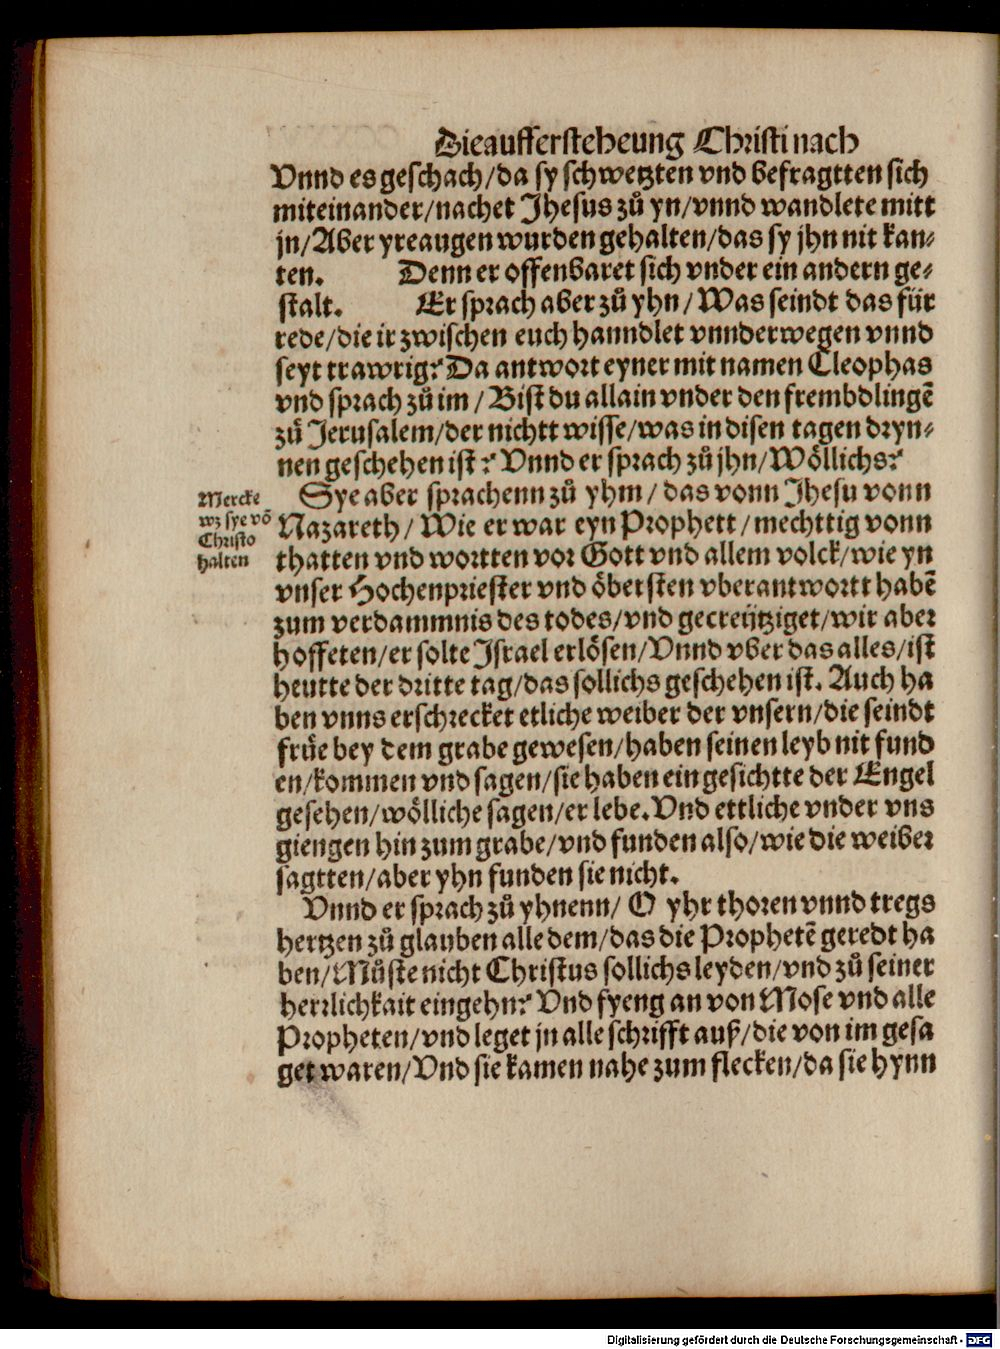 Die aufferstehеung Christi nach
Vnnd es geschach/da sy schwetzten vnd befragtten sich
miteinander/nachet Jhesus zů yn/vnnd wandlete mitt
jn/Aber yre augen wurden gehalten/das sy jhn nit kan⸗
ten. Denn er offenbaret sich vnder ein andern ge⸗
stalt. Er sprach aber zů yhn/Was seindt das für
rede/die ir zwischen euch hanndlet vnnderwegen vnnd
seyt trawrig? Da antwort eyner mit namen Cleophas
vnd sprach zů im/Bist du allain vnder den frembdlingē
zů Jerusalem/der nichtt wisse/was in disen tagen dryn⸗
nen geschehen ist? Vnnd er sprach zů jhn/Wöllichs?
Sye aber sprachenn zů yhm/das vonn Jhesu vonn
Nazareth/Wie er war eyn Prophett/mechttig vonn
thatten vnd wortten vor Gott vnd allem volck/wie yn
vnser Hochenpriester vnd öbersten vberantwortt habē
zum verdammnis des todes/vnd gecreijtziget/wir aber
hoffeten/er solte Israel erlösen/Vnnd vber das alles/ist
heutte der dritte tag/das sollichs geschehen ist. Auch ha
ben vnns erschrecket etliche weiber der vnsern/die seindt
früe bey dem grabe gewesen/haben seinen leyb nit fund
en/kommen vnd sagen/sie haben ein gesichtte der Engel
gesehen/wölliche sagen/er lebe. Vnd ettliche vnder vns
giengen hin zum grabe/vnd funden also/wie die weiber
sagtten/aber yhn funden sie nicht.
Vnnd er sprach zů yhnenn/O yhr thoren vnnd tregs
hertzen zů glauben alle dem/das die Prophetē geredt ha
ben/Můste nicht Christus sollichs leyden/vnd zů seiner
herrlichkait eingehn? Vnd fyeng an von Mose vnd alle
Propheten/vnd leget jn alle schrifft auß/die von im gesa
get waren/Vnd sie kamen nahe zum flecken/da sie hynn
Mercke
wz sye vō
Christo
halten
Digitalisierung gefördert durch die Deutsche Forschungsgemeinschaft - DFG